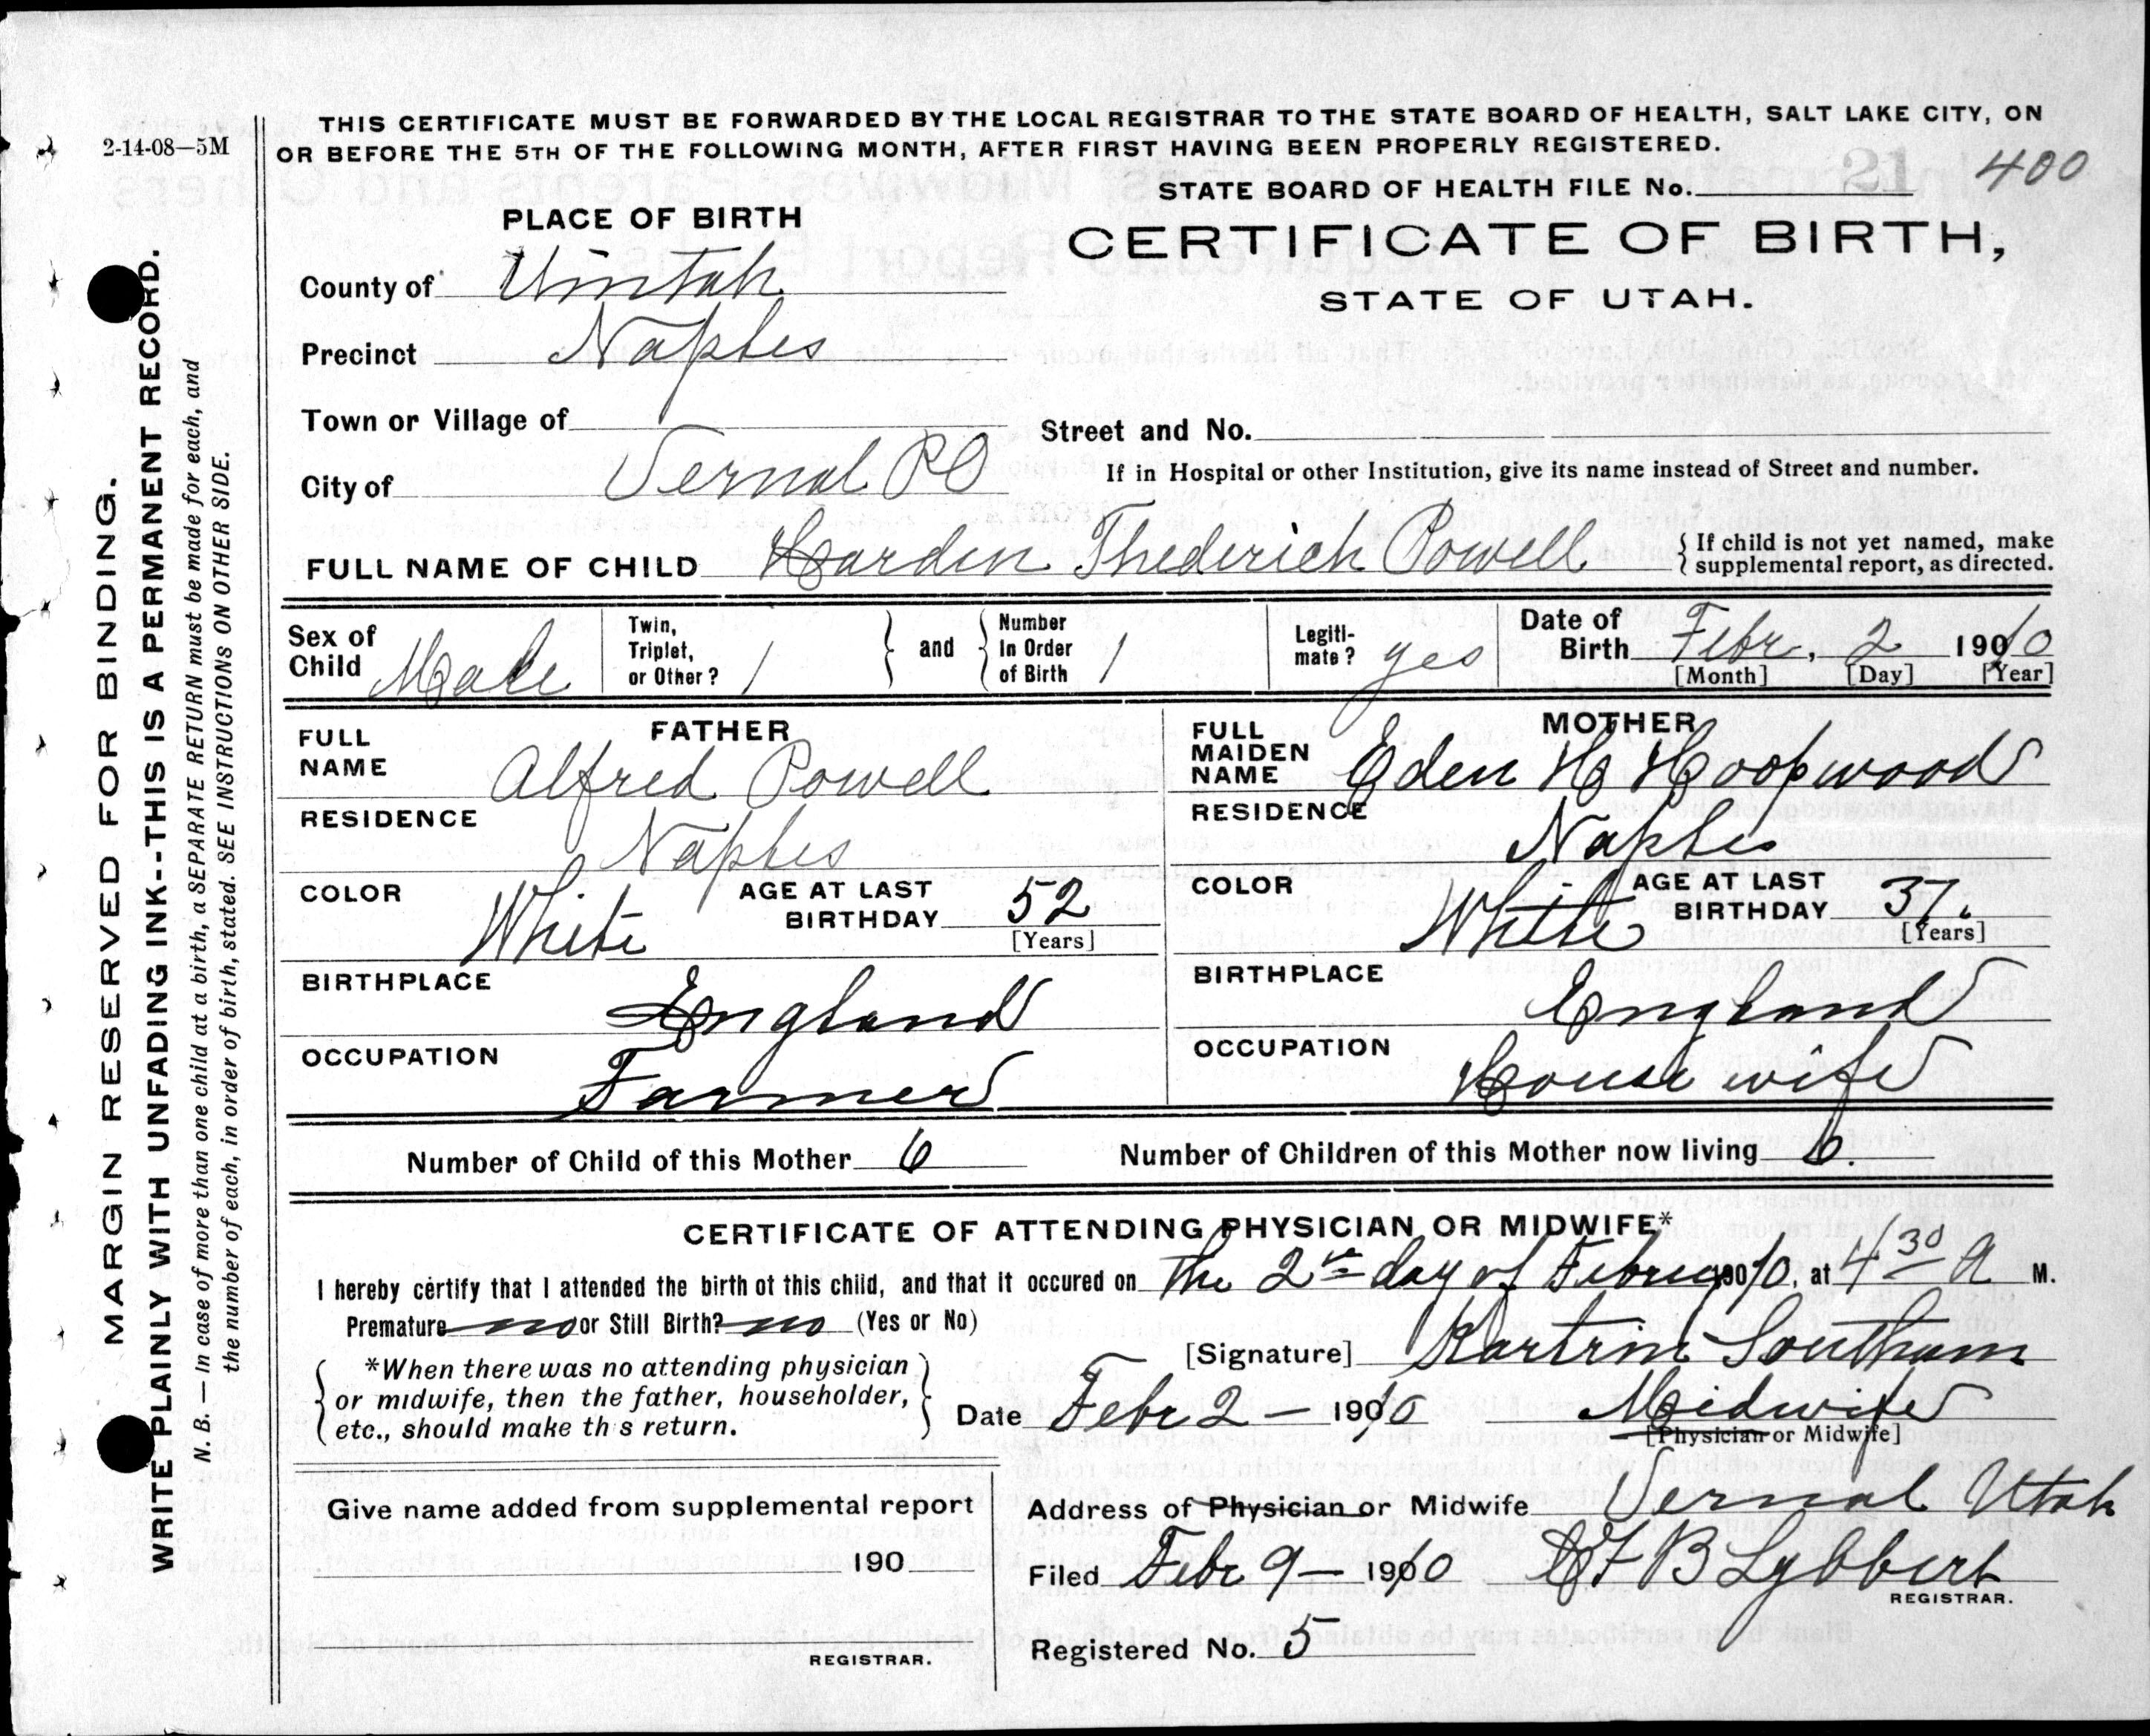 2-14-08—5M
THIS CERTIFICATE MUST BE FORWARDED BY THE LOCAL REGISTRAR TO THE STATE BOARD OF HEALTH, SALT LAKE CITY, ON
OR BEFORE THE 5TH OF THE FOLLOWING MONTH, AFTER FIRST HAVING BEEN PROPERLY REGISTERED.
STATE BOARD OF HEALTH FILE No. 21 400
PLACE OF BIRTH
CERTIFICATE OF BIRTH,
STATE OF UTAH.
County of Uintah
Precinct Naples
Town or Village of
Street and No.
City of Vernal PO
If in Hospital or other Institution, give its name instead of Street and number.
FULL NAME OF CHILD Harden Thederich Powell
{ If child is not yet named, make
{ supplemental report, as directed.
Sex of Child Male
Twin, Triplet, or Other? 1
and
Number In Order of Birth 1
Legiti-mate? yes
Date of Birth Febr, 2 1910
[Month] [Day] [Year]
FATHER
FULL NAME Alfred Powell
RESIDENCE
Naples
COLOR White
AGE AT LAST BIRTHDAY 52
[Years]
BIRTHPLACE
England
OCCUPATION
Farmer
MOTHER
FULL MAIDEN NAME Eden H Hoopwood
RESIDENCE
Naples
COLOR White
AGE AT LAST BIRTHDAY 37.
[Years]
BIRTHPLACE
England
OCCUPATION
House wife
Number of Child of this Mother 6
Number of Children of this Mother now living 6.
CERTIFICATE OF ATTENDING PHYSICIAN OR MIDWIFE*
I hereby certify that I attended the birth ot this child, and that it occured on the 2 day of Febru 1910, at 4 30 A M.
Premature no or Still Birth? no (Yes or No)
[Signature] Kartrin Southam
*When there was no attending physician
or midwife, then the father, householder,
etc., should make th s return.
Date Febr 2 — 1910
Midwife
[Physician or Midwife]
Give name added from supplemental report
190
REGISTRAR.
Address of Physician or Midwife Vernal Utah
Filed Febr 9 — 1910 C F B Lybbert
REGISTRAR.
Registered No. 5
MARGIN RESERVED FOR BINDING.
WRITE PLAINLY WITH UNFADING INK--THIS IS A PERMANENT RECORD.
N. B. — In case of more than one child at a birth, a SEPARATE RETURN must be made for each, and
the number of each, in order of birth, stated. SEE INSTRUCTIONS ON OTHER SIDE.